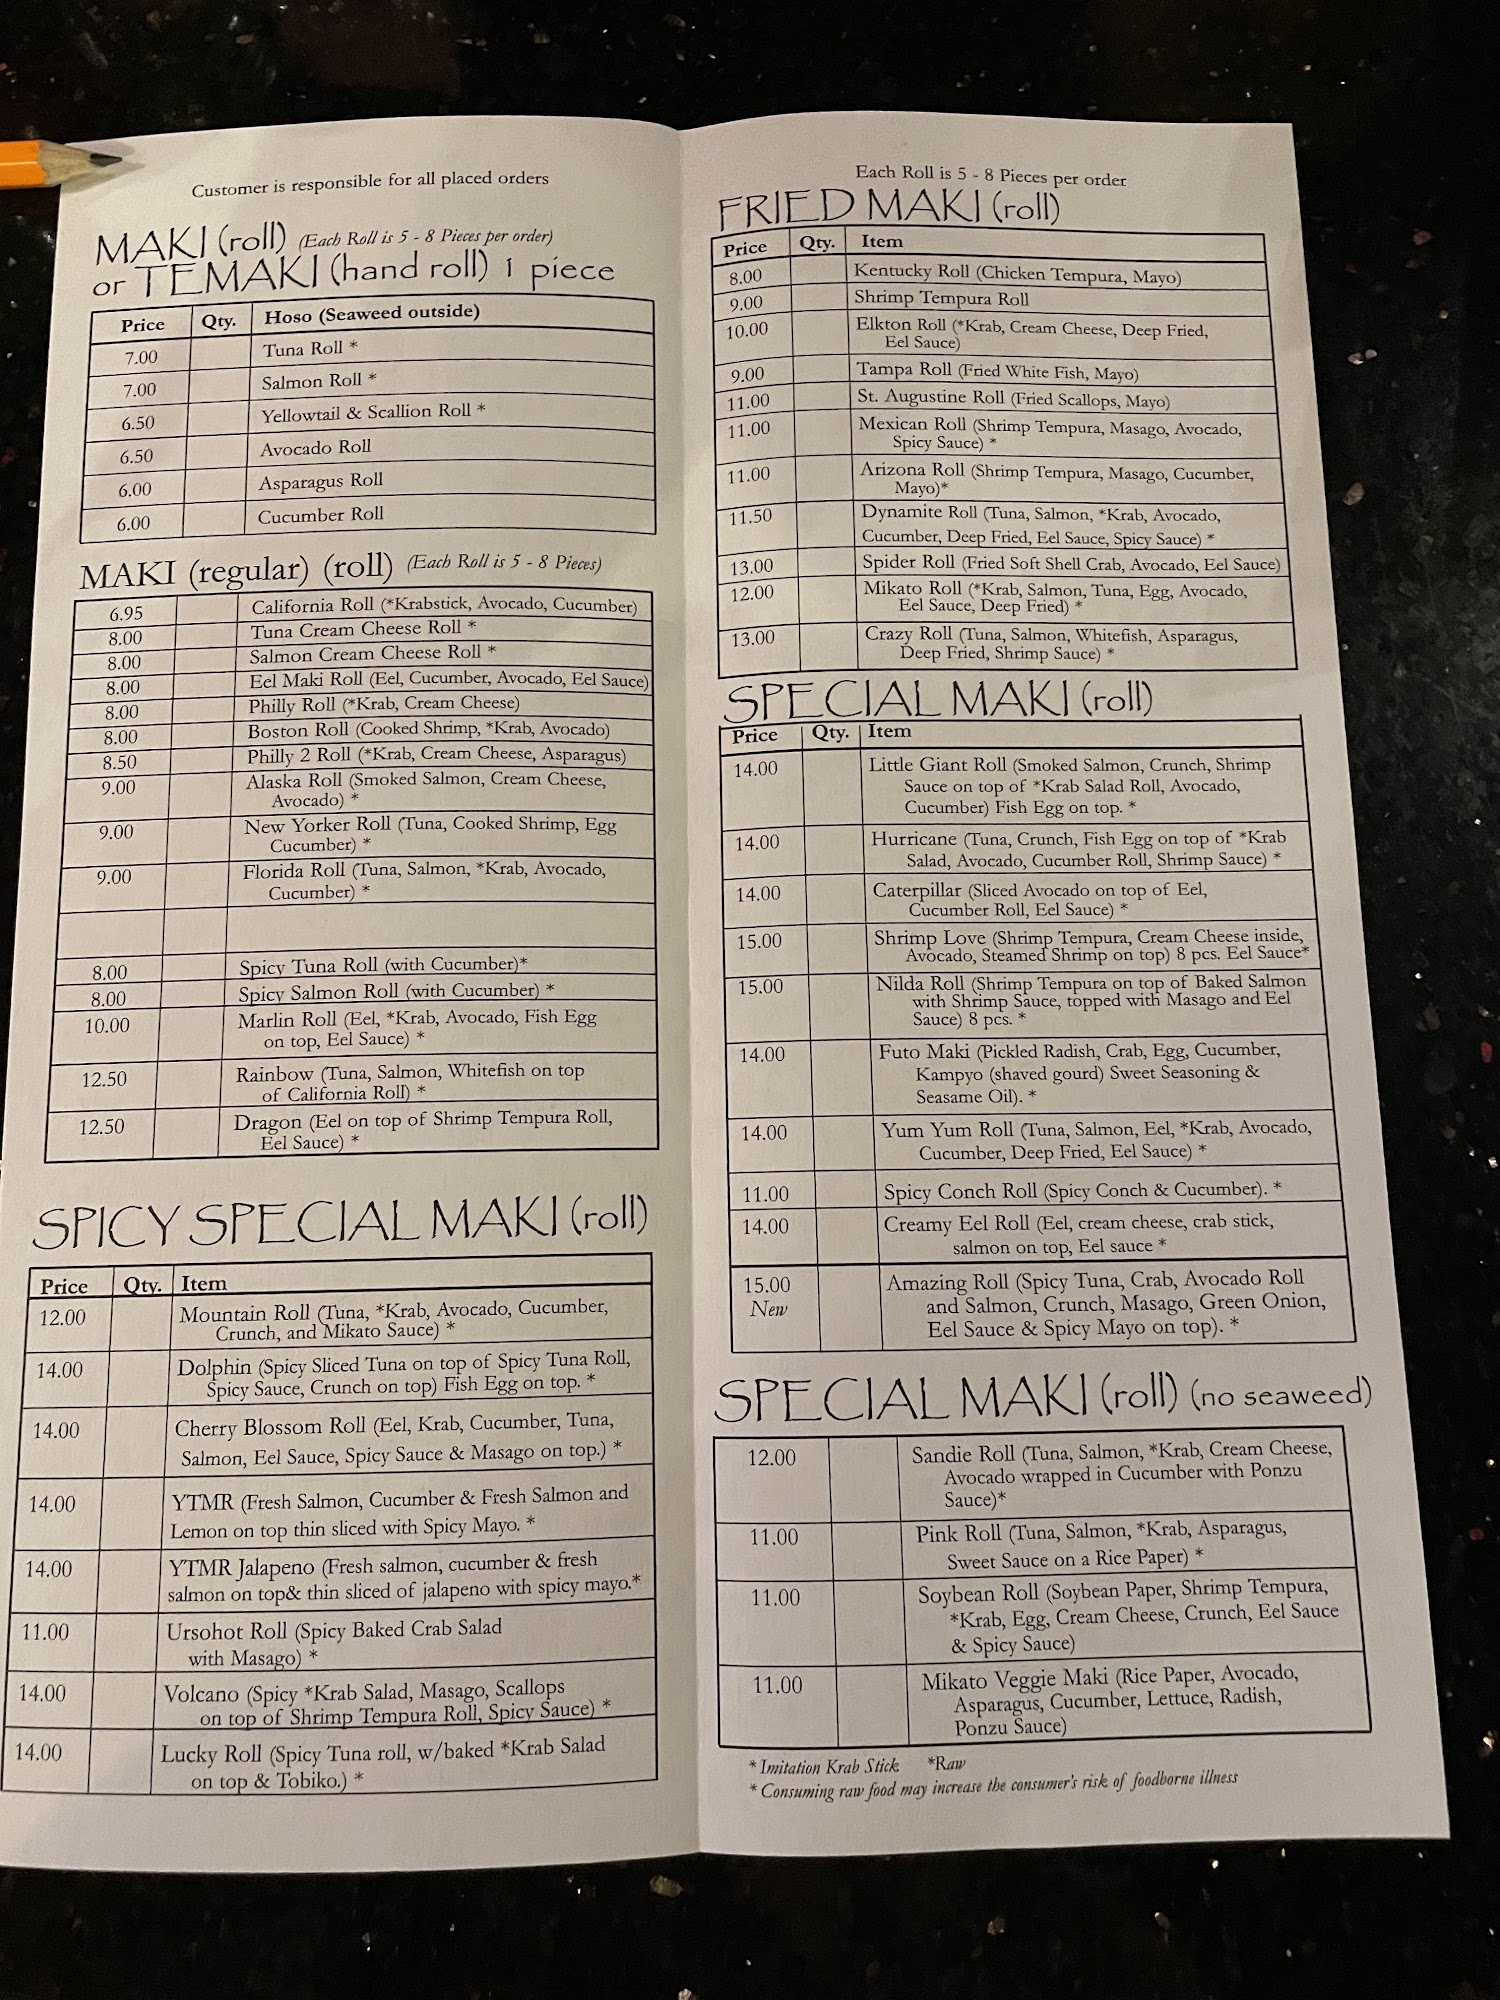 Customer is responsible for all placed orders
MAKI (roll) (Each Roll is 5 - 8 Pieces per order)
or TEMAKI (hand roll) 1 piece
Price Qty. Hoso (Seaweed outside)
7.00 Tuna Roll *
7.00 Salmon Roll *
6.50 Yellowtail & Scallion Roll *
6.50 Avocado Roll
6.00 Asparagus Roll
6.00 Cucumber Roll
MAKI (regular) (roll) (Each Roll is 5 - 8 Pieces)
6.95 California Roll (*Krabstick, Avocado, Cucumber)
8.00 Tuna Cream Cheese Roll *
8.00 Salmon Cream Cheese Roll *
8.00 Eel Maki Roll (Eel, Cucumber, Avocado, Eel Sauce)
8.00 Philly Roll (*Krab, Cream Cheese)
8.00 Boston Roll (Cooked Shrimp, *Krab, Avocado)
8.50 Philly 2 Roll (*Krab, Cream Cheese, Asparagus)
9.00 Alaska Roll (Smoked Salmon, Cream Cheese,
Avocado) *
9.00 New Yorker Roll (Tuna, Cooked Shrimp, Egg
Cucumber) *
9.00 Florida Roll (Tuna, Salmon, *Krab, Avocado,
Cucumber) *
8.00 Spicy Tuna Roll (with Cucumber)*
8.00 Spicy Salmon Roll (with Cucumber) *
10.00 Marlin Roll (Eel, *Krab, Avocado, Fish Egg
on top, Eel Sauce) *
12.50 Rainbow (Tuna, Salmon, Whitefish on top
of California Roll) *
12.50 Dragon (Eel on top of Shrimp Tempura Roll,
Eel Sauce) *
SPICY SPECIAL MAKI (roll)
Price Qty. Item
12.00 Mountain Roll (Tuna, *Krab, Avocado, Cucumber,
Crunch, and Mikato Sauce) *
14.00 Dolphin (Spicy Sliced Tuna on top of Spicy Tuna Roll,
Spicy Sauce, Crunch on top) Fish Egg on top. *
14.00 Cherry Blossom Roll (Eel, Krab, Cucumber, Tuna,
Salmon, Eel Sauce, Spicy Sauce & Masago on top.) *
14.00 YTMR (Fresh Salmon, Cucumber & Fresh Salmon and
Lemon on top thin sliced with Spicy Mayo. *
14.00 YTMR Jalapeno (Fresh salmon, cucumber & fresh
salmon on top& thin sliced of jalapeno with spicy mayo.*
11.00 Ursohot Roll (Spicy Baked Crab Salad
with Masago) *
14.00 Volcano (Spicy *Krab Salad, Masago, Scallops
on top of Shrimp Tempura Roll, Spicy Sauce) *
14.00 Lucky Roll (Spicy Tuna roll, w/baked *Krab Salad
on top & Tobiko.) *
Each Roll is 5 - 8 Pieces per order
FRIED MAKI (roll)
Price Qty. Item
8.00 Kentucky Roll (Chicken Tempura, Mayo)
9.00 Shrimp Tempura Roll
10.00 Elkton Roll (*Krab, Cream Cheese, Deep Fried,
Eel Sauce)
9.00 Tampa Roll (Fried White Fish, Mayo)
11.00 St. Augustine Roll (Fried Scallops, Mayo)
11.00 Mexican Roll (Shrimp Tempura, Masago, Avocado,
Spicy Sauce) *
11.00 Arizona Roll (Shrimp Tempura, Masago, Cucumber,
Mayo)*
11.50 Dynamite Roll (Tuna, Salmon, *Krab, Avocado,
Cucumber, Deep Fried, Eel Sauce, Spicy Sauce) *
13.00 Spider Roll (Fried Soft Shell Crab, Avocado, Eel Sauce)
12.00 Mikato Roll (*Krab, Salmon, Tuna, Egg, Avocado,
Eel Sauce, Deep Fried) *
13.00 Crazy Roll (Tuna, Salmon, Whitefish, Asparagus,
Deep Fried, Shrimp Sauce) *
SPECIAL MAKI (roll)
Price Qty. Item
14.00 Little Giant Roll (Smoked Salmon, Crunch, Shrimp
Sauce on top of *Krab Salad Roll, Avocado,
Cucumber) Fish Egg on top. *
14.00 Hurricane (Tuna, Crunch, Fish Egg on top of *Krab
Salad, Avocado, Cucumber Roll, Shrimp Sauce) *
14.00 Caterpillar (Sliced Avocado on top of Eel,
Cucumber Roll, Eel Sauce) *
15.00 Shrimp Love (Shrimp Tempura, Cream Cheese inside,
Avocado, Steamed Shrimp on top) 8 pcs. Eel Sauce*
15.00 Nilda Roll (Shrimp Tempura on top of Baked Salmon
with Shrimp Sauce, topped with Masago and Eel
Sauce) 8 pcs. *
14.00 Futo Maki (Pickled Radish, Crab, Egg, Cucumber,
Kampyo (shaved gourd) Sweet Seasoning &
Seasame Oil). *
14.00 Yum Yum Roll (Tuna, Salmon, Eel, *Krab, Avocado,
Cucumber, Deep Fried, Eel Sauce) *
11.00 Spicy Conch Roll (Spicy Conch & Cucumber). *
14.00 Creamy Eel Roll (Eel, cream cheese, crab stick,
salmon on top, Eel sauce *
15.00 Amazing Roll (Spicy Tuna, Crab, Avocado Roll
New and Salmon, Crunch, Masago, Green Onion,
Eel Sauce & Spicy Mayo on top). *
SPECIAL MAKI (roll) (no seaweed)
12.00 Sandie Roll (Tuna, Salmon, *Krab, Cream Cheese,
Avocado wrapped in Cucumber with Ponzu
Sauce)*
11.00 Pink Roll (Tuna, Salmon, *Krab, Asparagus,
Sweet Sauce on a Rice Paper) *
11.00 Soybean Roll (Soybean Paper, Shrimp Tempura,
*Krab, Egg, Cream Cheese, Crunch, Eel Sauce
& Spicy Sauce)
11.00 Mikato Veggie Maki (Rice Paper, Avocado,
Asparagus, Cucumber, Lettuce, Radish,
Ponzu Sauce)
* Imitation Krab Stick *Raw
* Consuming raw food may increase the consumer's risk of foodborne illness